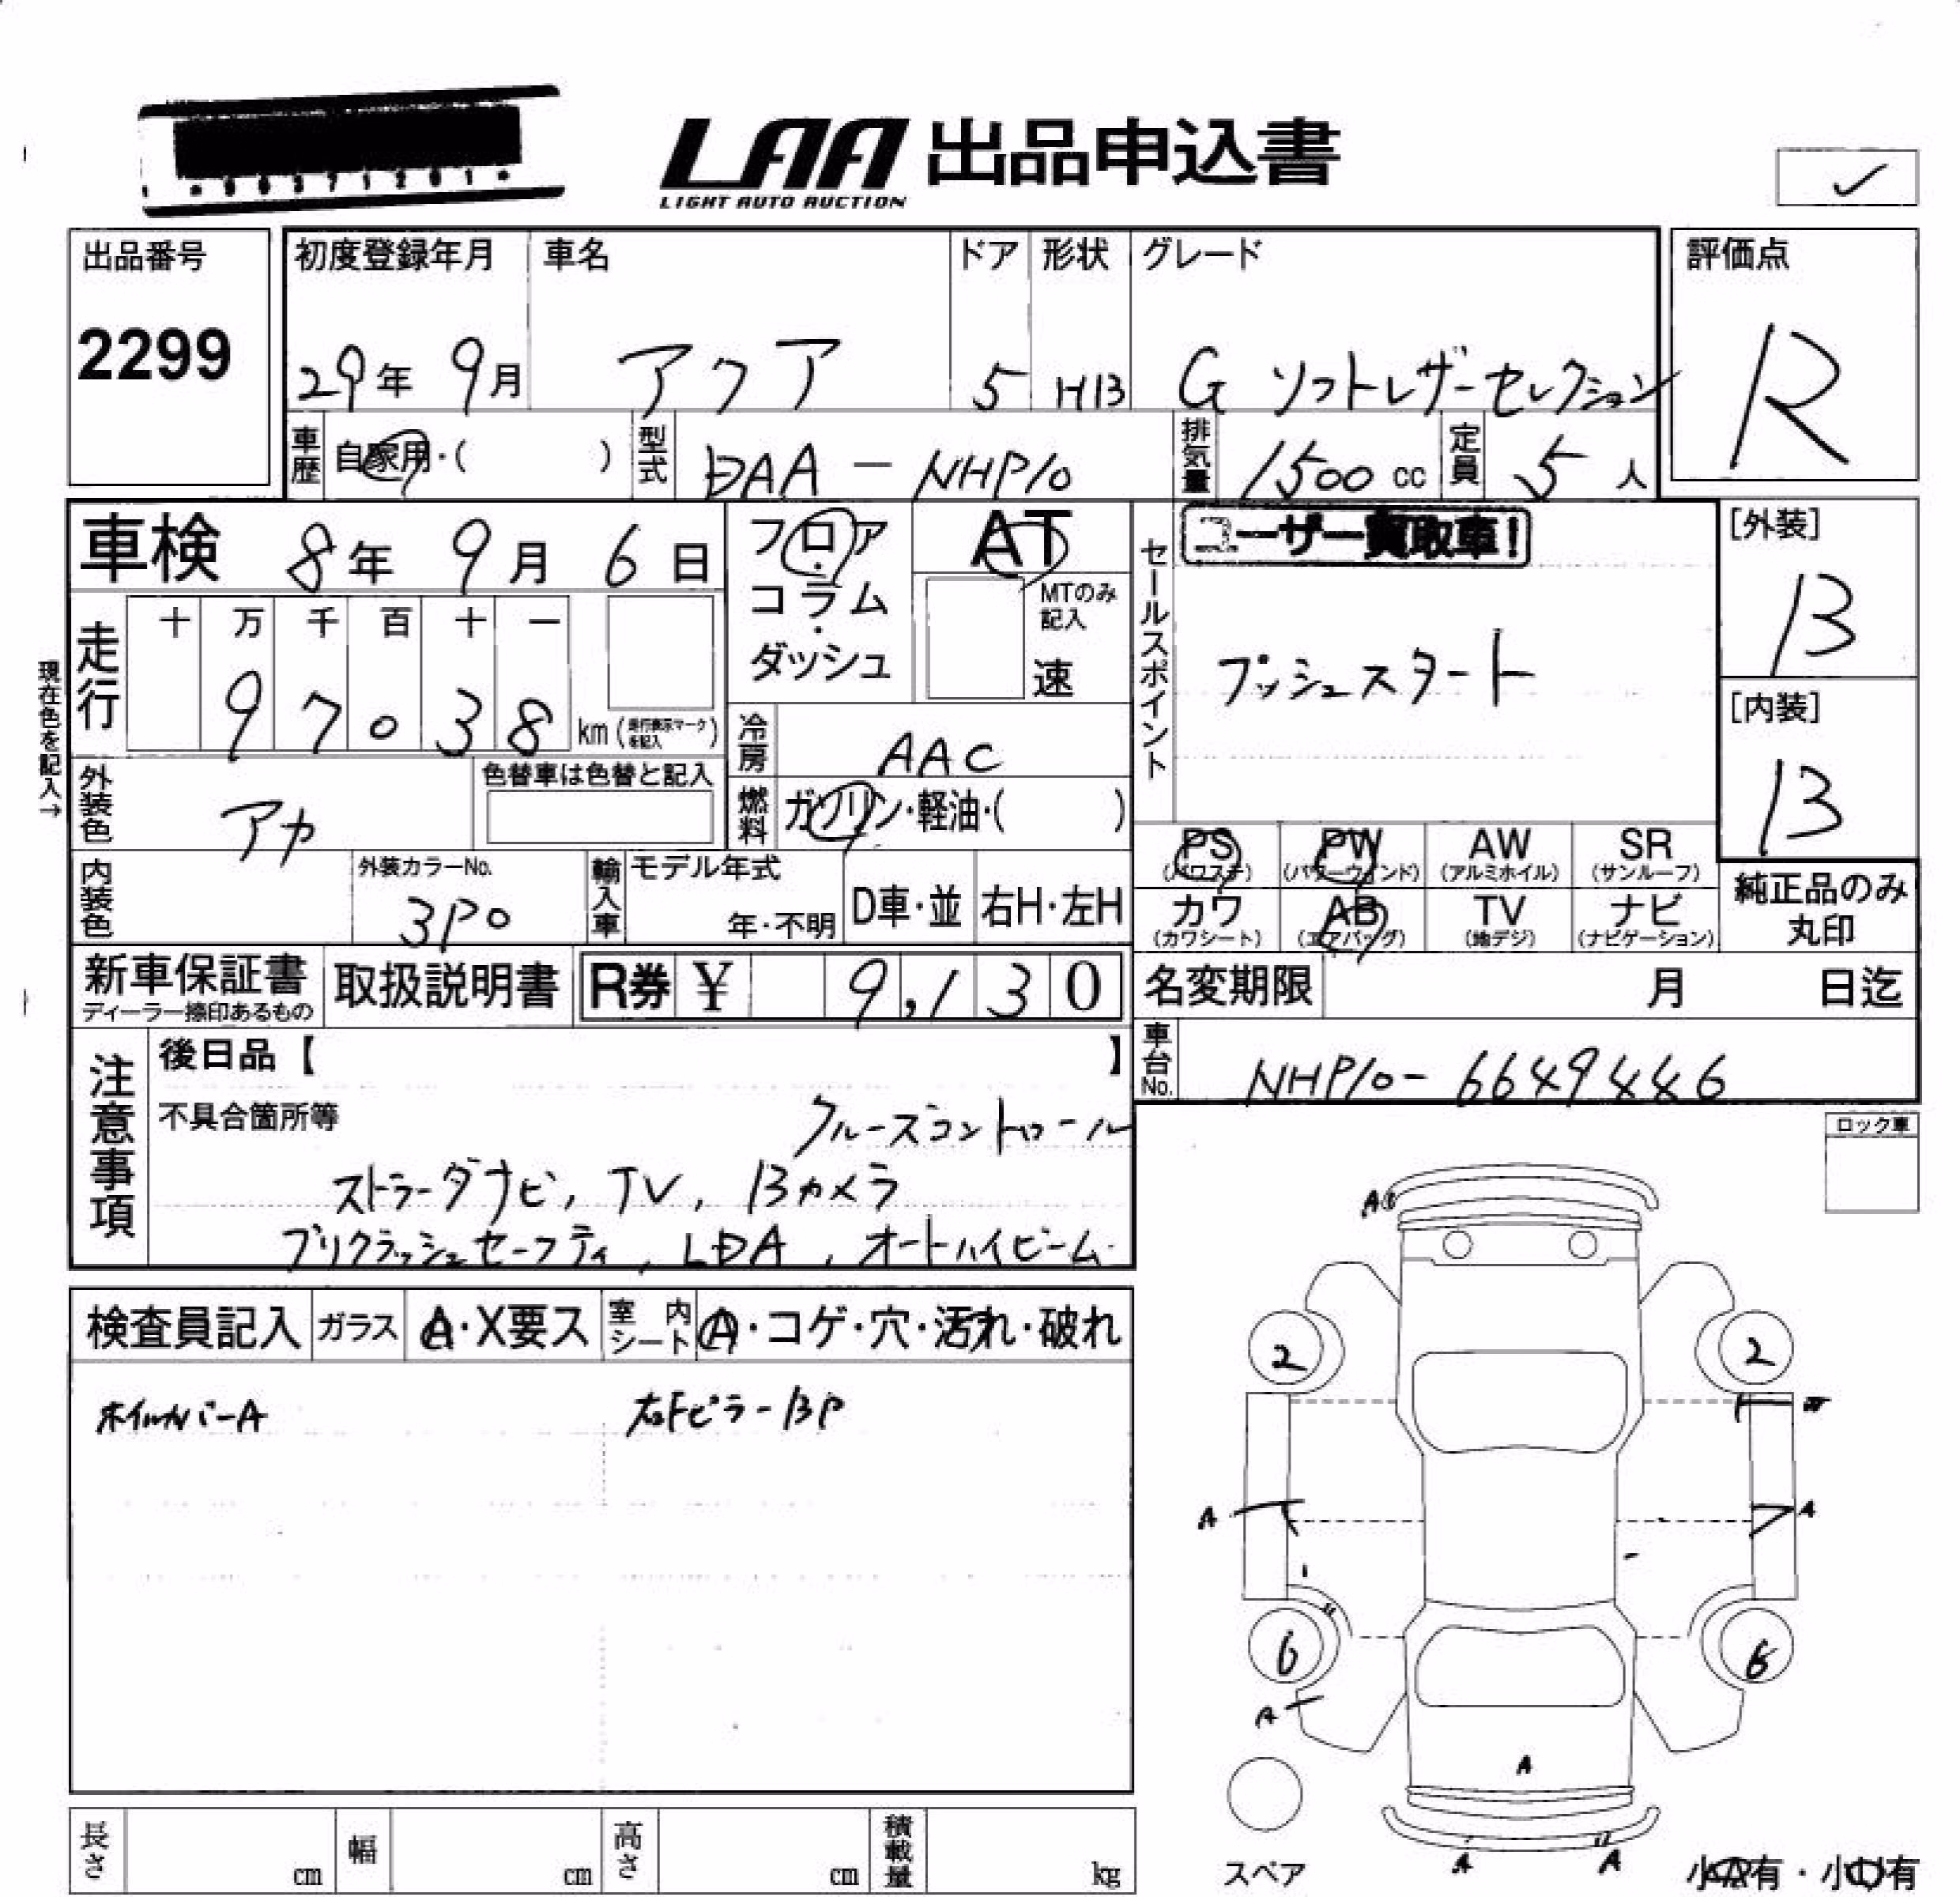 LAA 出品申込書
LIGHT AUTO AUCTION
出品番号
2299
初度登録年月 車名 ドア 形状 グレード
29年 9月 アクア 5 HB G ソフトレザーセレクション
評価点
R
車歴 自家用・( ) 型式 DAA-NHP10 排気量 1500 cc 定員 5 人
車検 8年 9月 6日
フロア・コラム・ダッシュ
AT
MTのみ記入
速
セールスポイント
ユーザー買取車!
プッシュスタート
[外装]
B
[内装]
B
現在色を記入→
走行 十 万 千 百 十 一
97038 km (走行表示マークを記入)
冷房 AAC
外装色 アカ
色替車は色替と記入
燃料 ガソリン・軽油・( )
PS (パワステ) PW (パワーウインド) AW (アルミホイル) SR (サンルーフ)
カワ (カワシート) AB (エアバッグ) TV (地デジ) ナビ (ナビゲーション)
純正品のみ丸印
内装色 外装カラーNo. 3P0
輸入車 モデル年式 年・不明 D車・並 右H・左H
新車保証書 ディーラー捺印あるもの
取扱説明書
R券 ¥ 9,130
名変期限 月 日迄
車台No. NHP10-6649446
注意事項
後日品【 】
不具合箇所等
クルーズコントロール
ストラーダナビ, TV, Bカメラ
プリクラッシュセーフティ, LDA, オートハイビーム
ロック車
検査員記入 ガラス A・X要ス 室内シート A・コゲ・穴・汚れ・破れ
ホイルカバーA 右Fピラー BP
A
2 2
A A
6 6
A
A
A A
スペア
長さ cm 幅 cm 高さ cm 積載量 kg